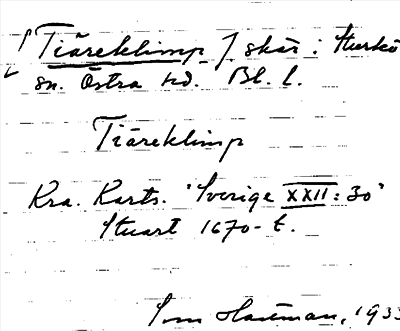 [Tiäreklimp] skär i Sturkö
sn. Östra hd. Bl. l.
Tiäreklimp
Kra. Karts. "Sverige XXII: 30"
Stuart 1670-t.
Ivar Hartman, 1933